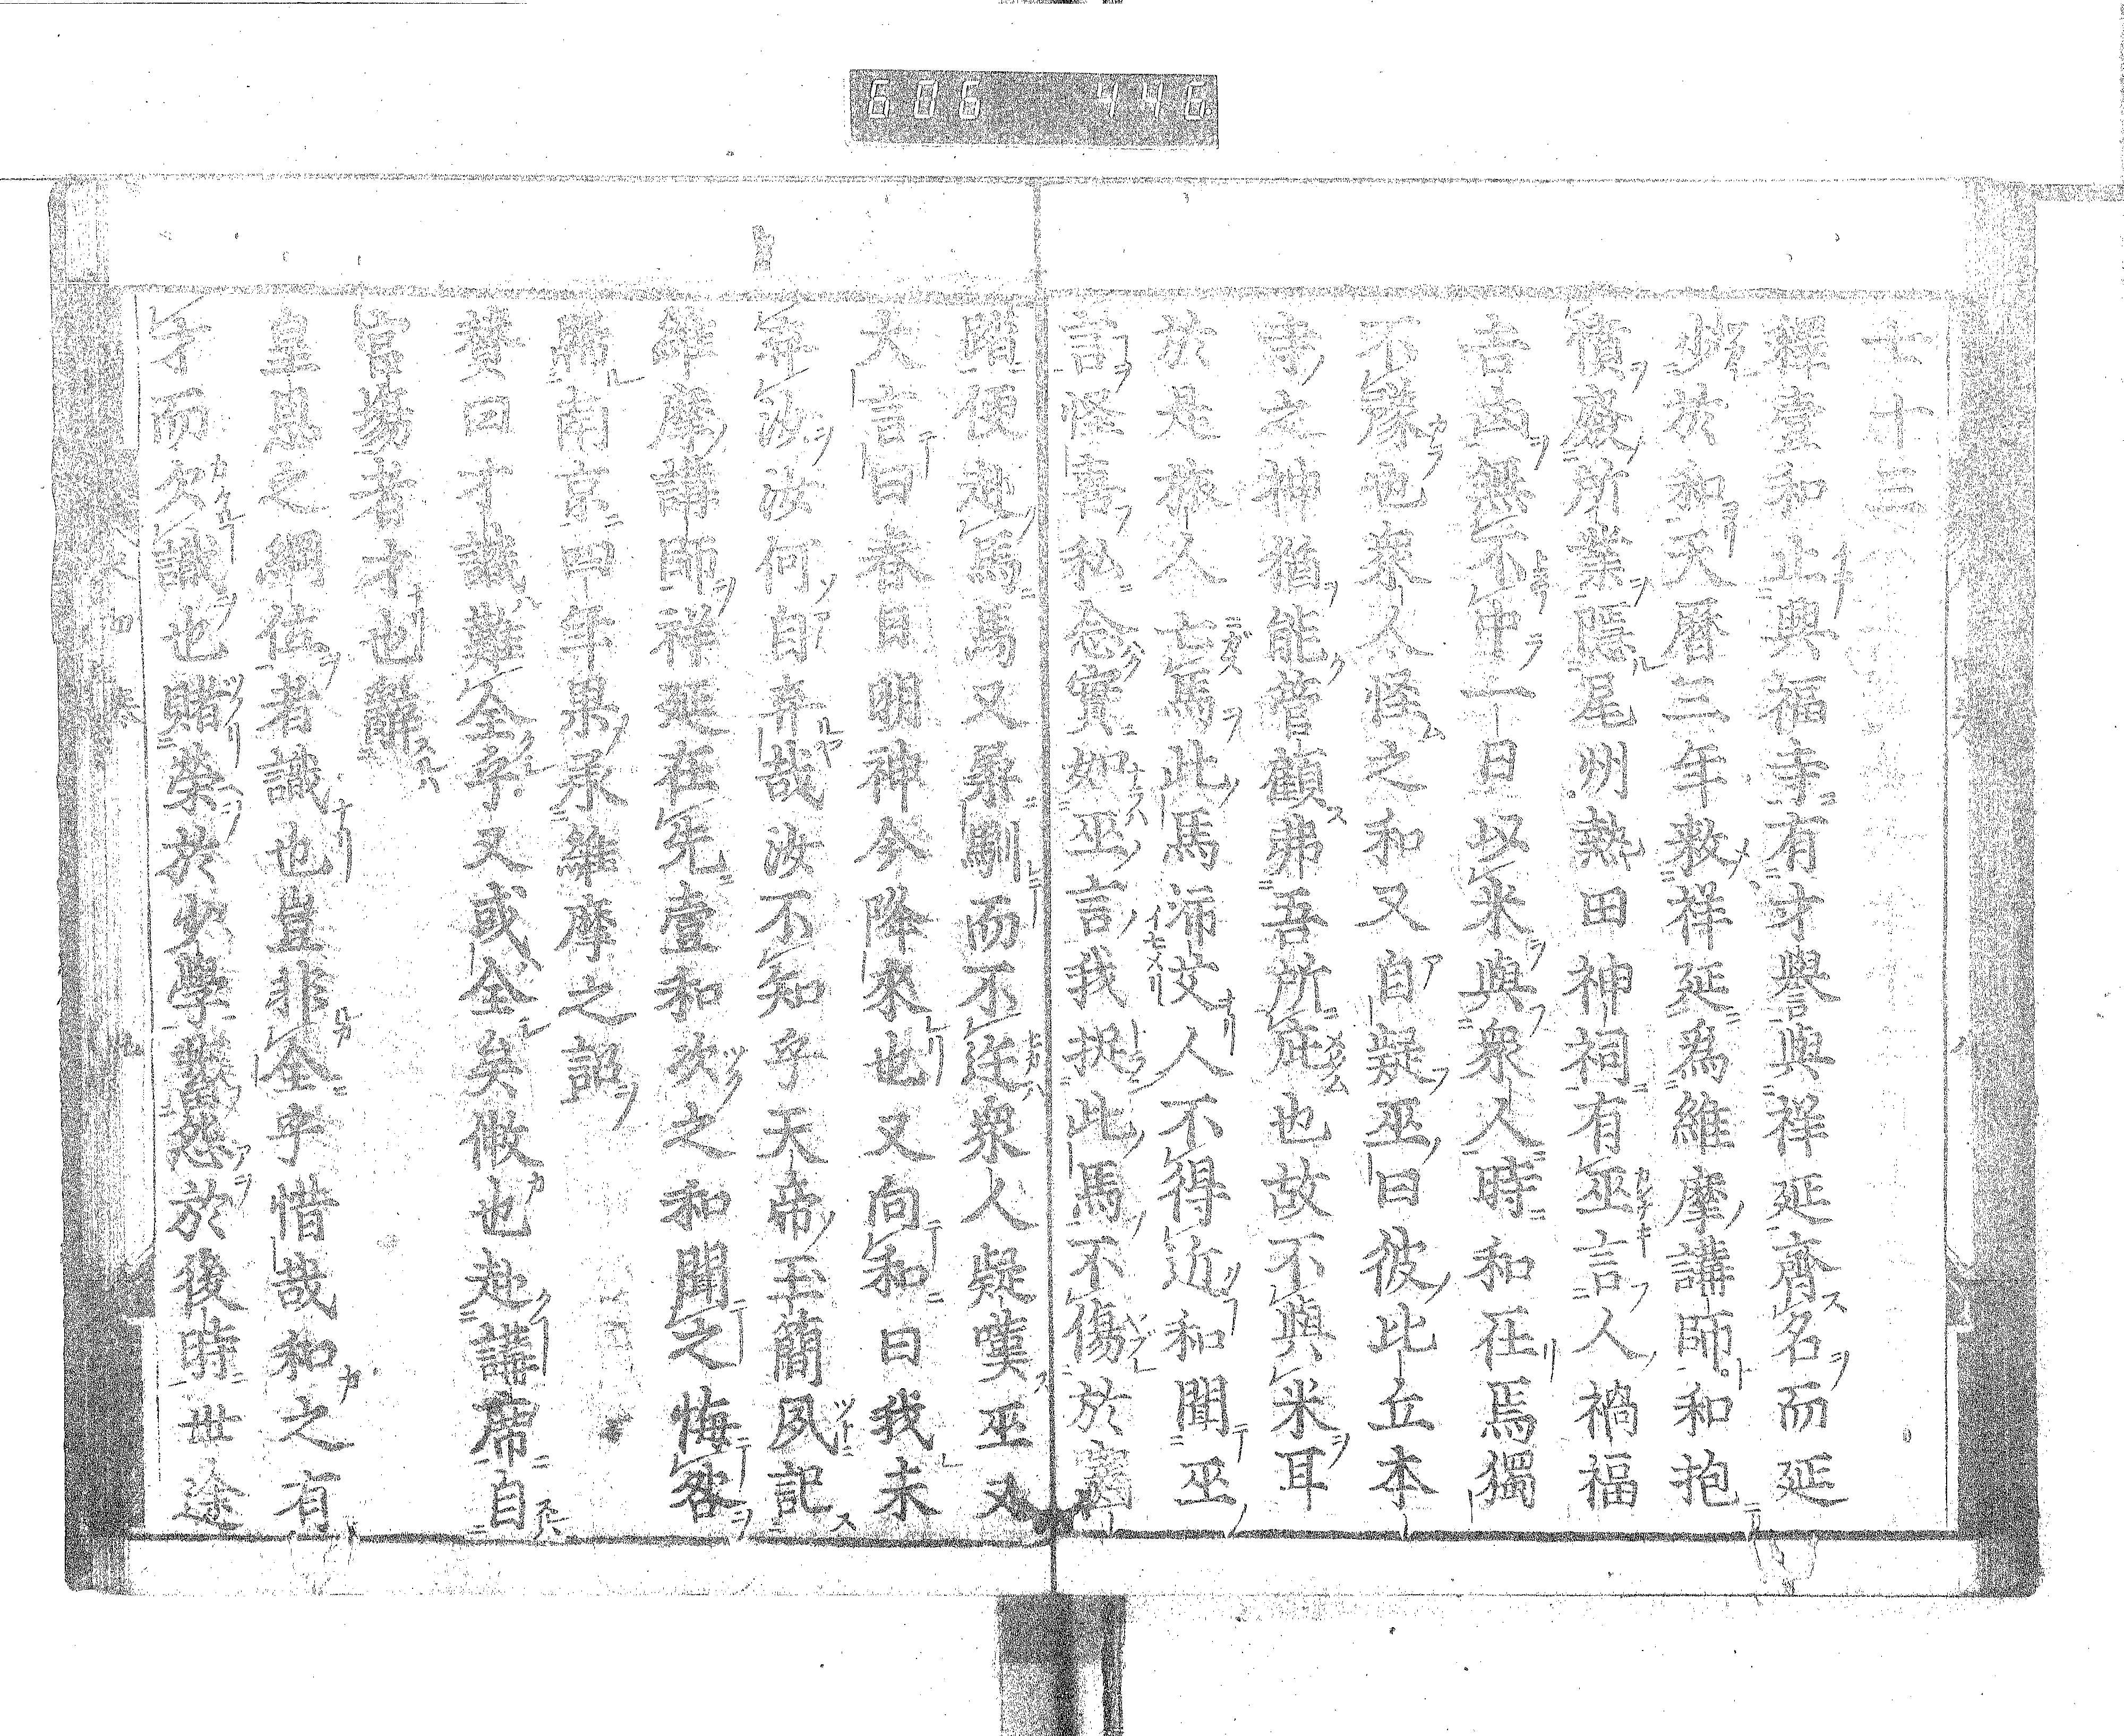 606 446
七十三
釋壹和止興福寺有才譽與祥延齊名而延
少於和天曆三年敕祥延爲維摩講師和抱
憤廢所業隱尾州熱田神祠有巫言人禍福
吉凶無不中一日以米與衆人時和在焉獨
不豫也衆人怪之和又自疑巫曰彼比丘本
寺之神猶能管顧弗吾所庇也故不與米耳
於是旅人亡馬此馬沛艾人不得近和聞巫
言怪喜私念實如巫言我捉此馬不傷於
蹈便赴馬馬又柔馴而不迕衆人疑嘆巫又
大言曰春日明神今降來也又向和曰我未
弃汝汝何自弃哉汝不知乎天帝玉簡夙記
維摩講師祥延在先壹和次之和聞之悔咎
歸南京四年果承維摩之詔
贊曰才識難全乎又或全矣儆也赴講席自
官塲者才也辭
皇恩之綱位者識也豈非全乎惜哉和之有
才而欠識也賭榮於少學蓄怨於後時世途